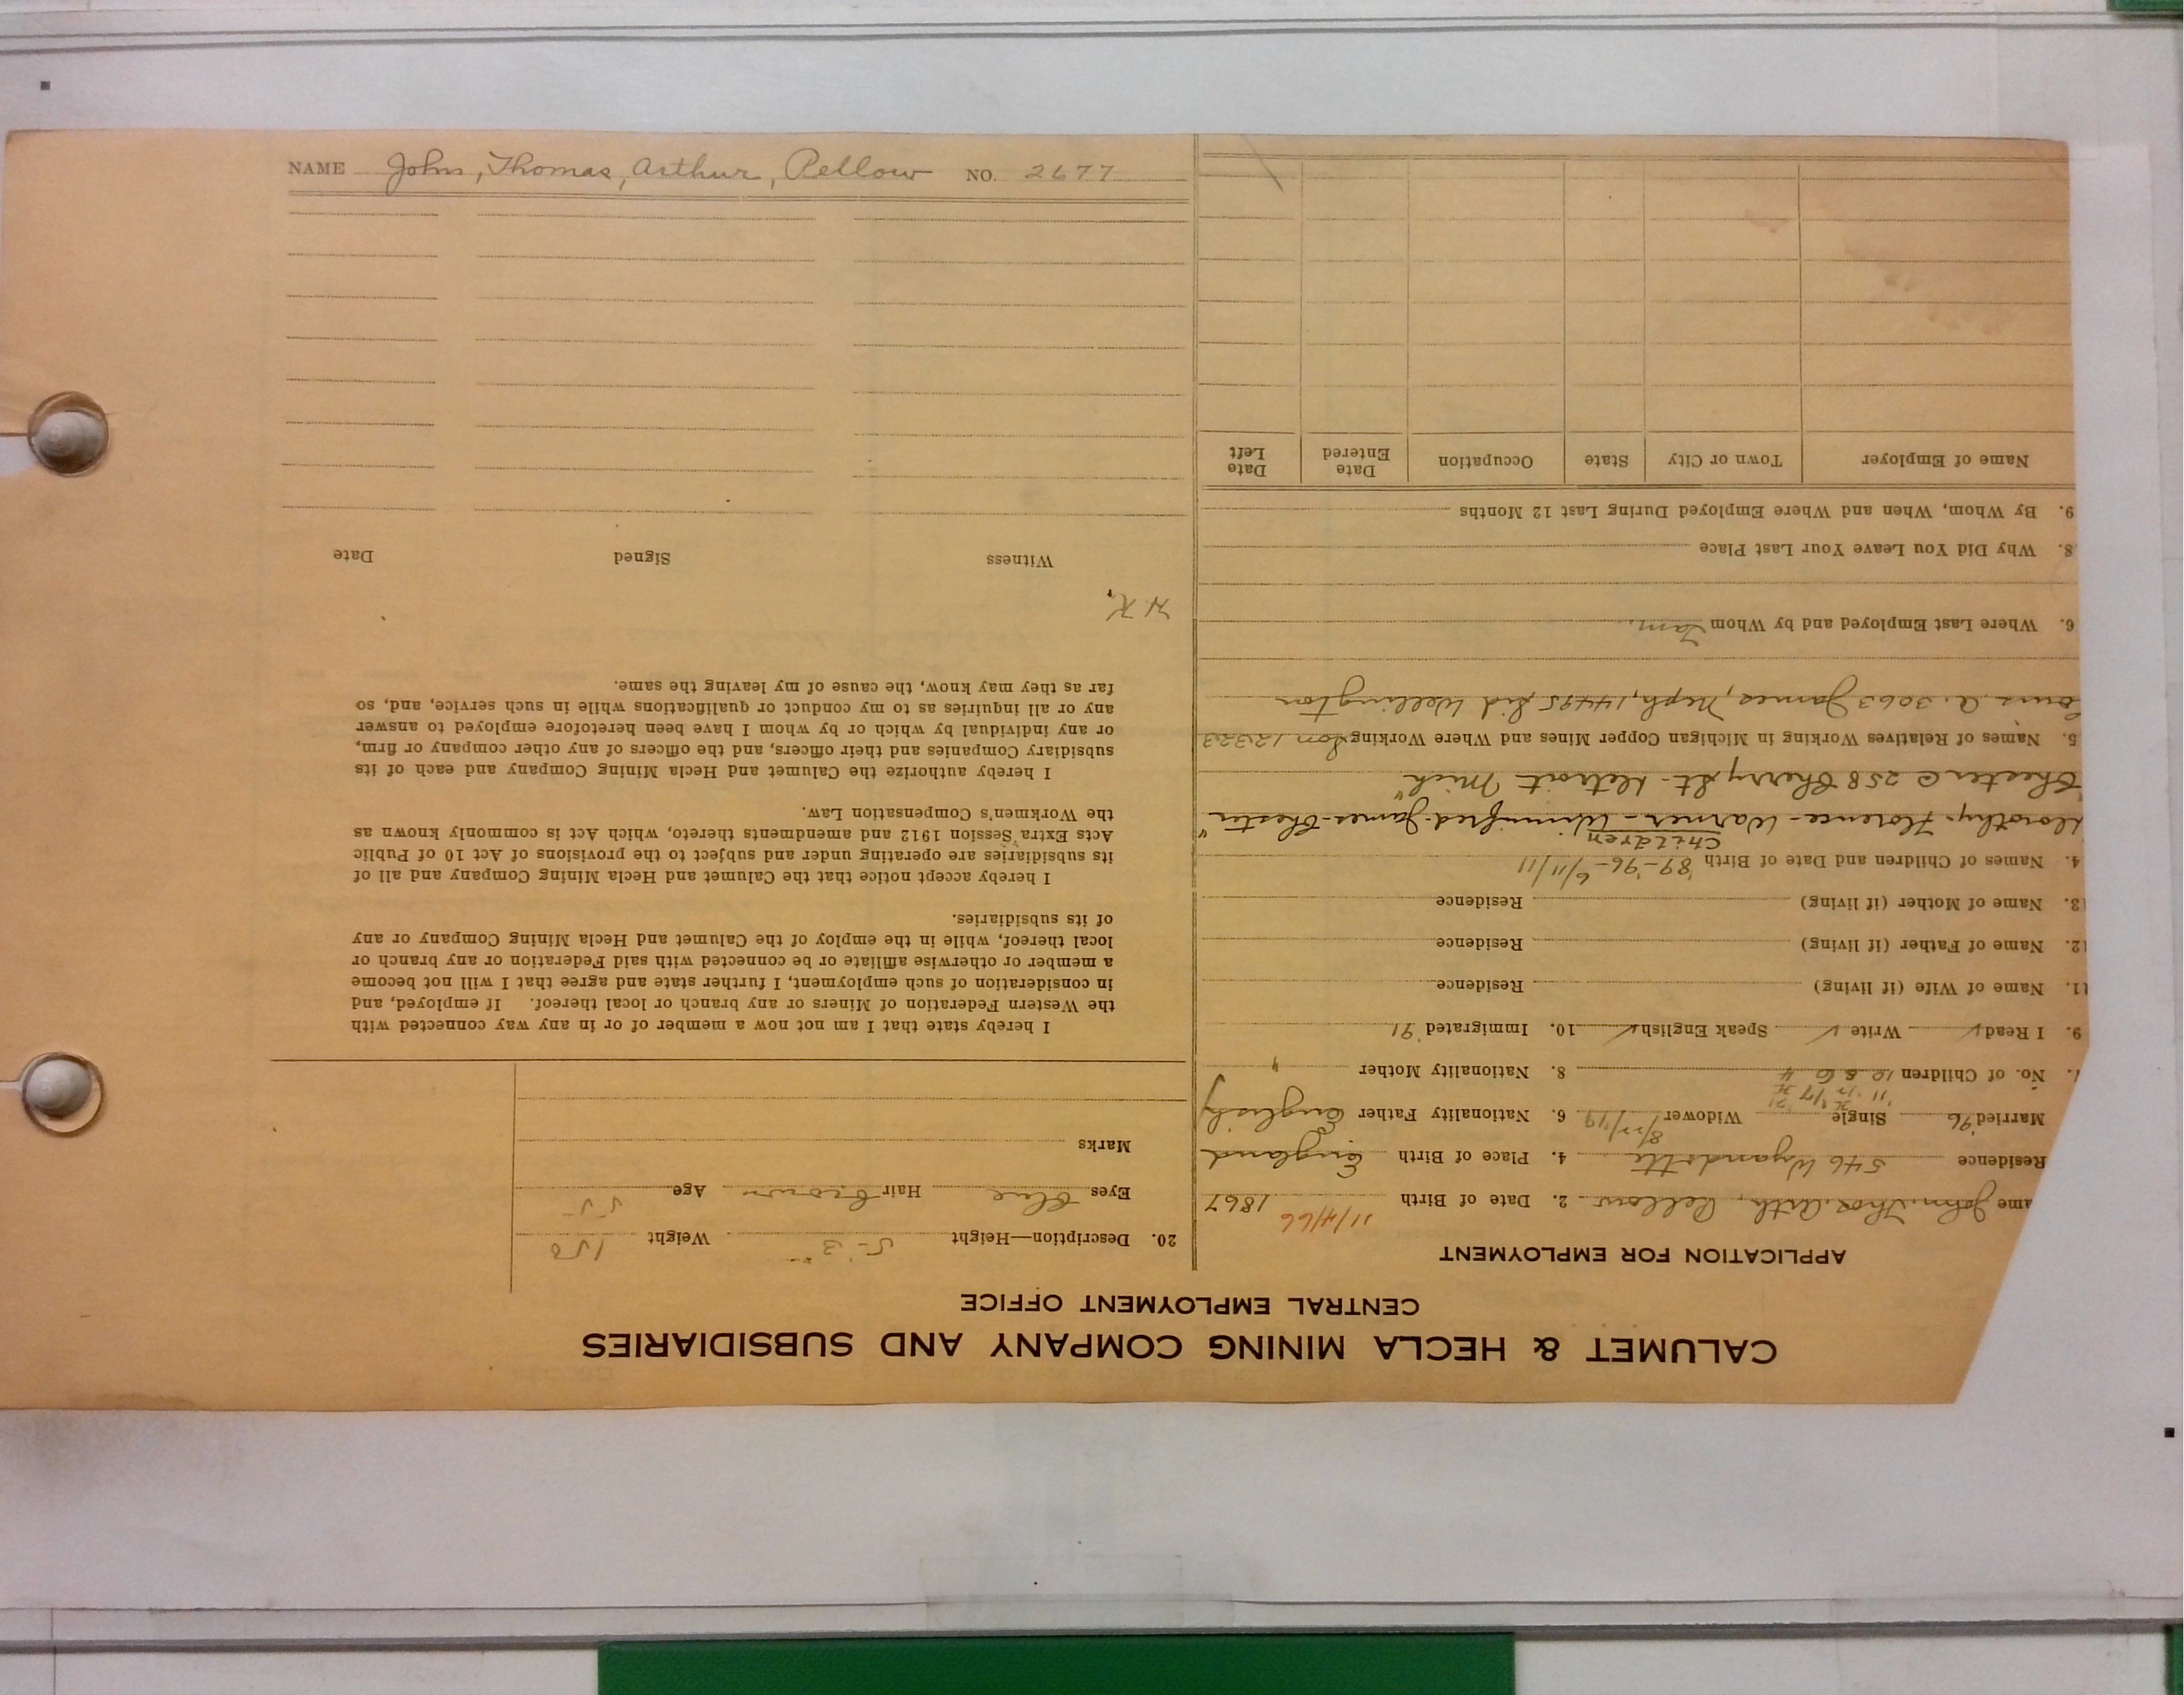 CALUMET & HECLA MINING COMPANY AND SUBSIDIARIES
CENTRAL EMPLOYMENT OFFICE
APPLICATION FOR EMPLOYMENT
ame John, Thos. Arth. Pellow 2. Date of Birth 11/4/66 1867
Residence 546 Wyandotte 4. Place of Birth England
Married '96 Single Widower 8/22/19 6. Nationality Father English
No. of Children 8. Nationality Mother "
9. I Read ✓ Write ✓ Speak English ✓ 10. Immigrated '91
11. Name of Wife (if living) Residence
12. Name of Father (if living) Residence
3. Name of Mother (if living) Residence
4. Names of Children and Date of Birth '89-'96-6/11/11
Children
Dorothy-Florence-Warner-Winnifred-James-Chester"
"Chester C 258 Cherry St-Detroit Mich"
5. Names of Relatives Working in Michigan Copper Mines and Where Working Son 12323
A. 3063 James, Neph, 14495 Wellington
6. Where Last Employed and by Whom Tam.
8. Why Did You Leave Your Last Place
9. By Whom, When and Where Employed During Last 12 Months
Name of Employer Town or City State Occupation Date Entered Date Left
20. Description—Height 5-3" Weight 150
Eyes Blue Hair brown Age 55
Marks
I hereby state that I am not now a member of or in any way connected with
the Western Federation of Miners or any branch or local thereof. If employed, and
in consideration of such employment, I further state and agree that I will not become
a member or otherwise affiliate or be connected with said Federation or any branch or
local thereof, while in the employ of the Calumet and Hecla Mining Company or any
of its subsidiaries.
I hereby accept notice that the Calumet and Hecla Mining Company and all of
its subsidiaries are operating under and subject to the provisions of Act 10 of Public
Acts Extra Session 1912 and amendments thereto, which Act is commonly known as
the Workmen's Compensation Law.
I hereby authorize the Calumet and Hecla Mining Company and each of its
subsidiary Companies and their officers, and the officers of any other company or firm,
or any individual by which or by whom I have been heretofore employed to answer
any or all inquiries as to my conduct or qualifications while in such service, and, so
far as they may know, the cause of my leaving the same.
Witness Signed Date
NAME John, Thomas, Arthur, Pellow NO. 2677